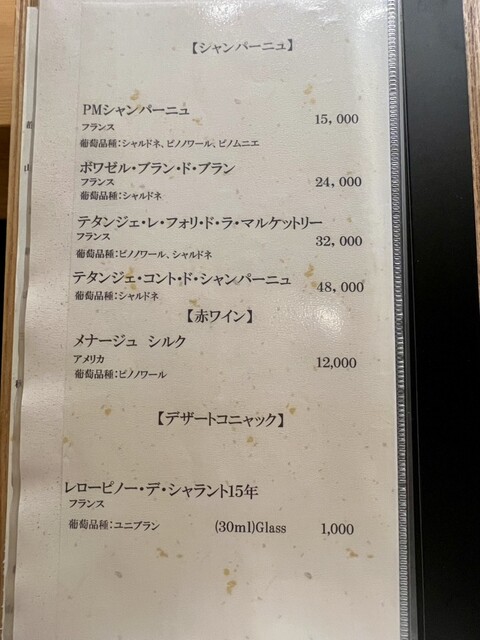 【シャンパーニュ】
PMシャンパーニュ
フランス
15,000
葡萄品種:シャルドネ、ピノノワール、ピノムニエ
ボワゼル・ブラン・ド・ブラン
フランス
24,000
葡萄品種:シャルドネ
テタンジェ・レ・フォリ・ド・ラ・マルケットリー
フランス
32,000
葡萄品種:ピノノワール、シャルドネ
テタンジェ・コント・ド・シャンパーニュ
48,000
葡萄品種:シャルドネ
【赤ワイン】
メナージュ シルク
アメリカ
12,000
葡萄品種:ピノノワール
【デザートコニャック】
レローピノー・デ・シャラント15年
フランス
葡萄品種:ユニブラン (30ml)Glass 1,000